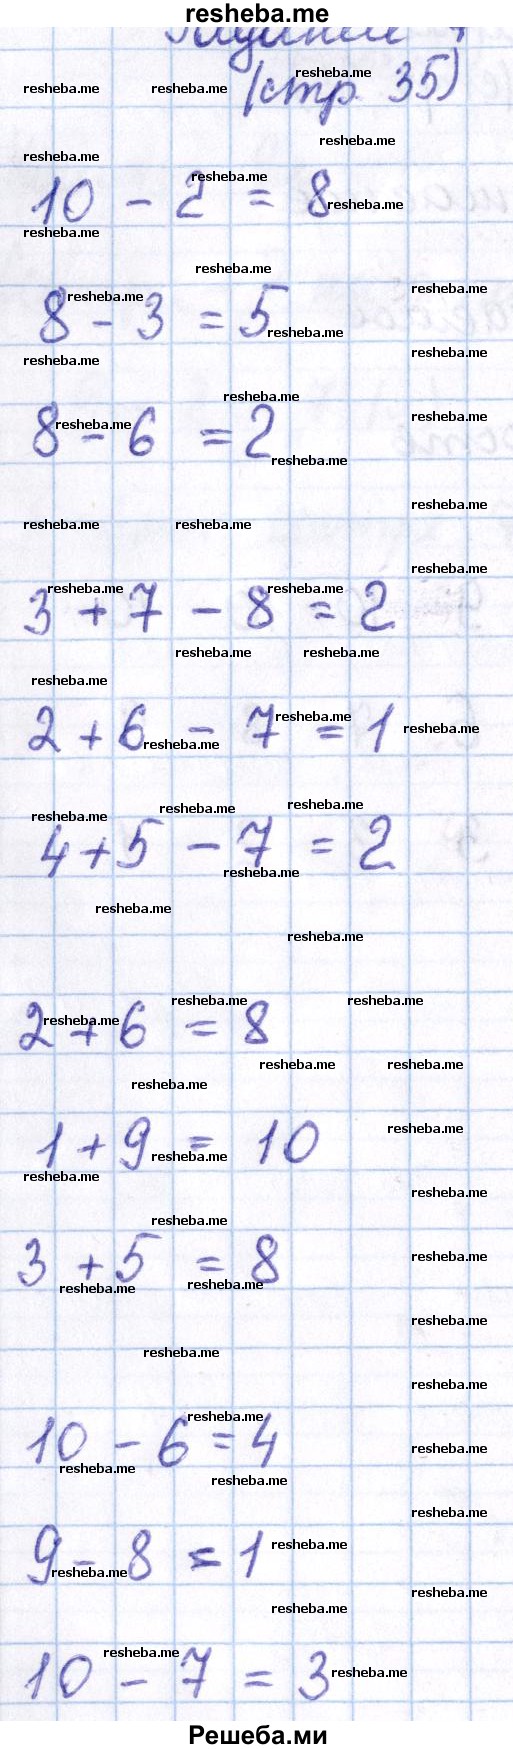 resheba.me
(стр. 35)
10 - 2 = 8
8 - 3 = 5
8 - 6 = 2
3 + 7 - 8 = 2
2 + 6 - 7 = 1
4 + 5 - 7 = 2
2 + 6 = 8
1 + 9 = 10
3 + 5 = 8
10 - 6 = 4
9 - 8 = 1
10 - 7 = 3
Решеба.ми